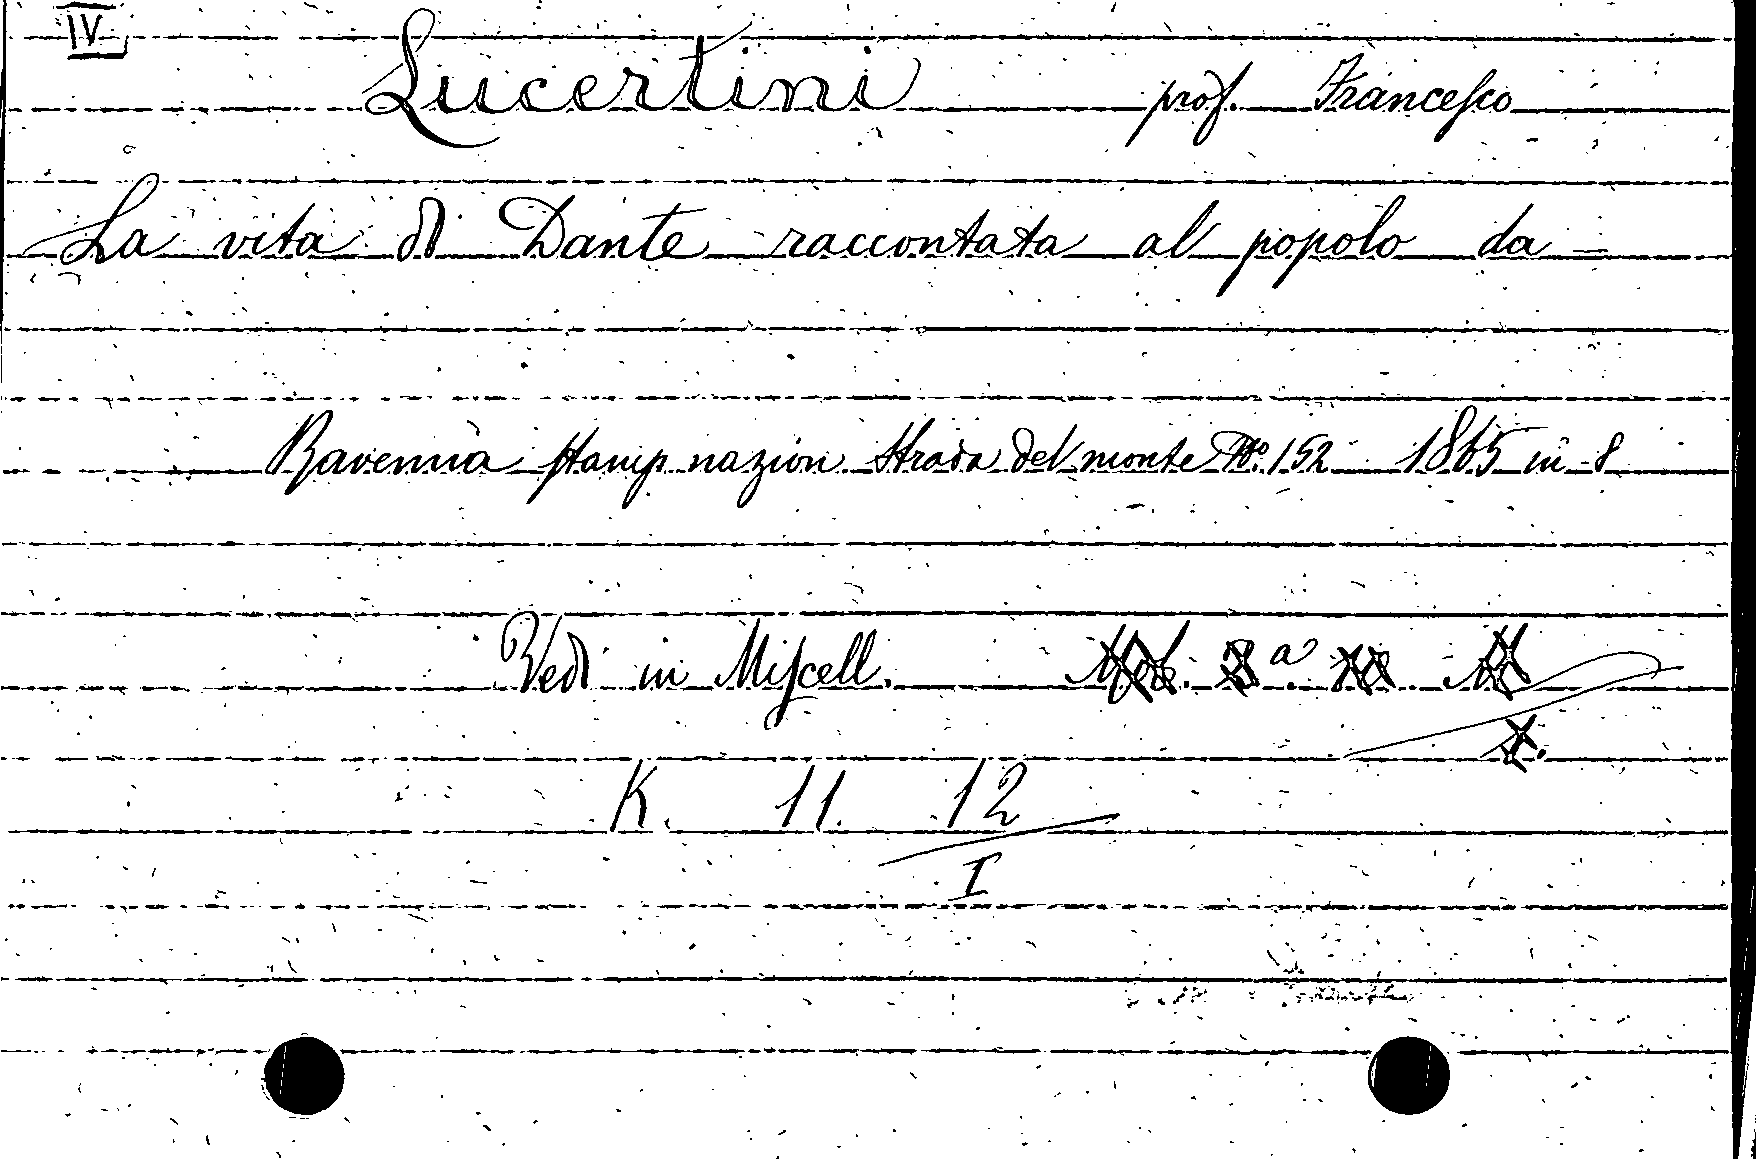 IV
Lucertini prof. Francesco
La vita di Dante raccontata al popolo da —
Ravenna stamp nazion Strada del monte No. 152 1865 in 8
Vedi in Miscell.
K. 11. 12
I